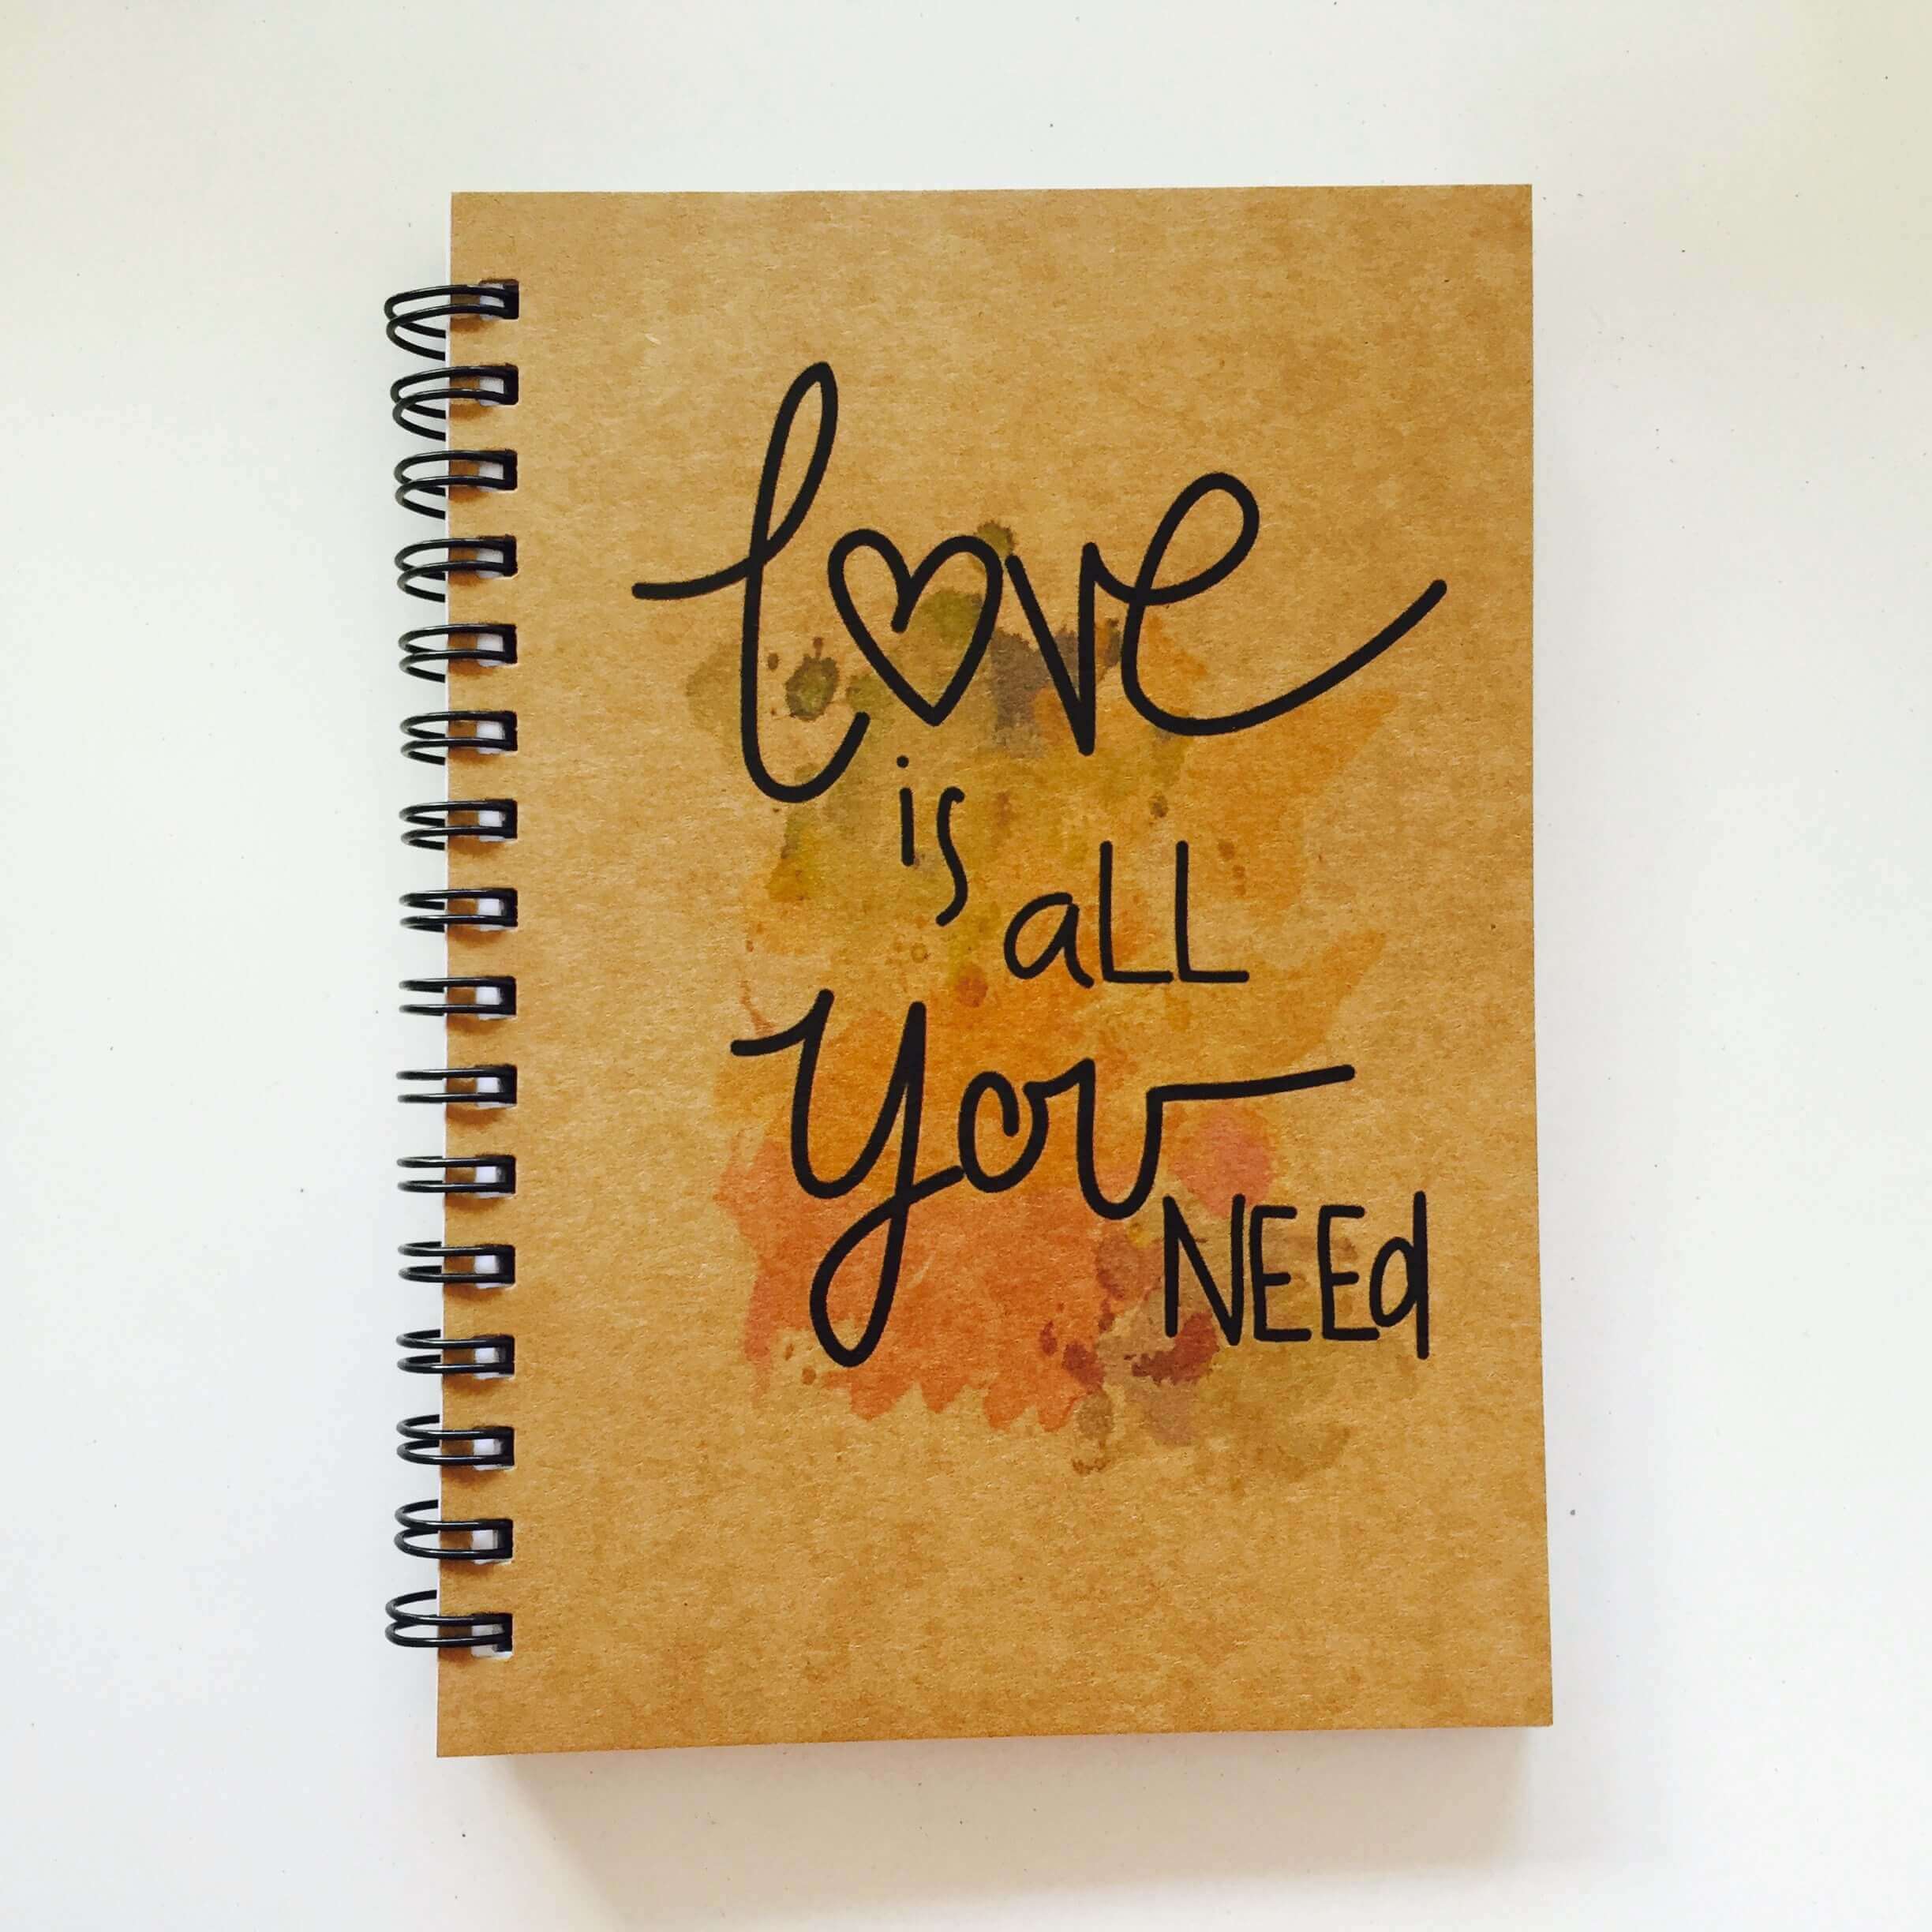 love
is
aLL
you
NEEd